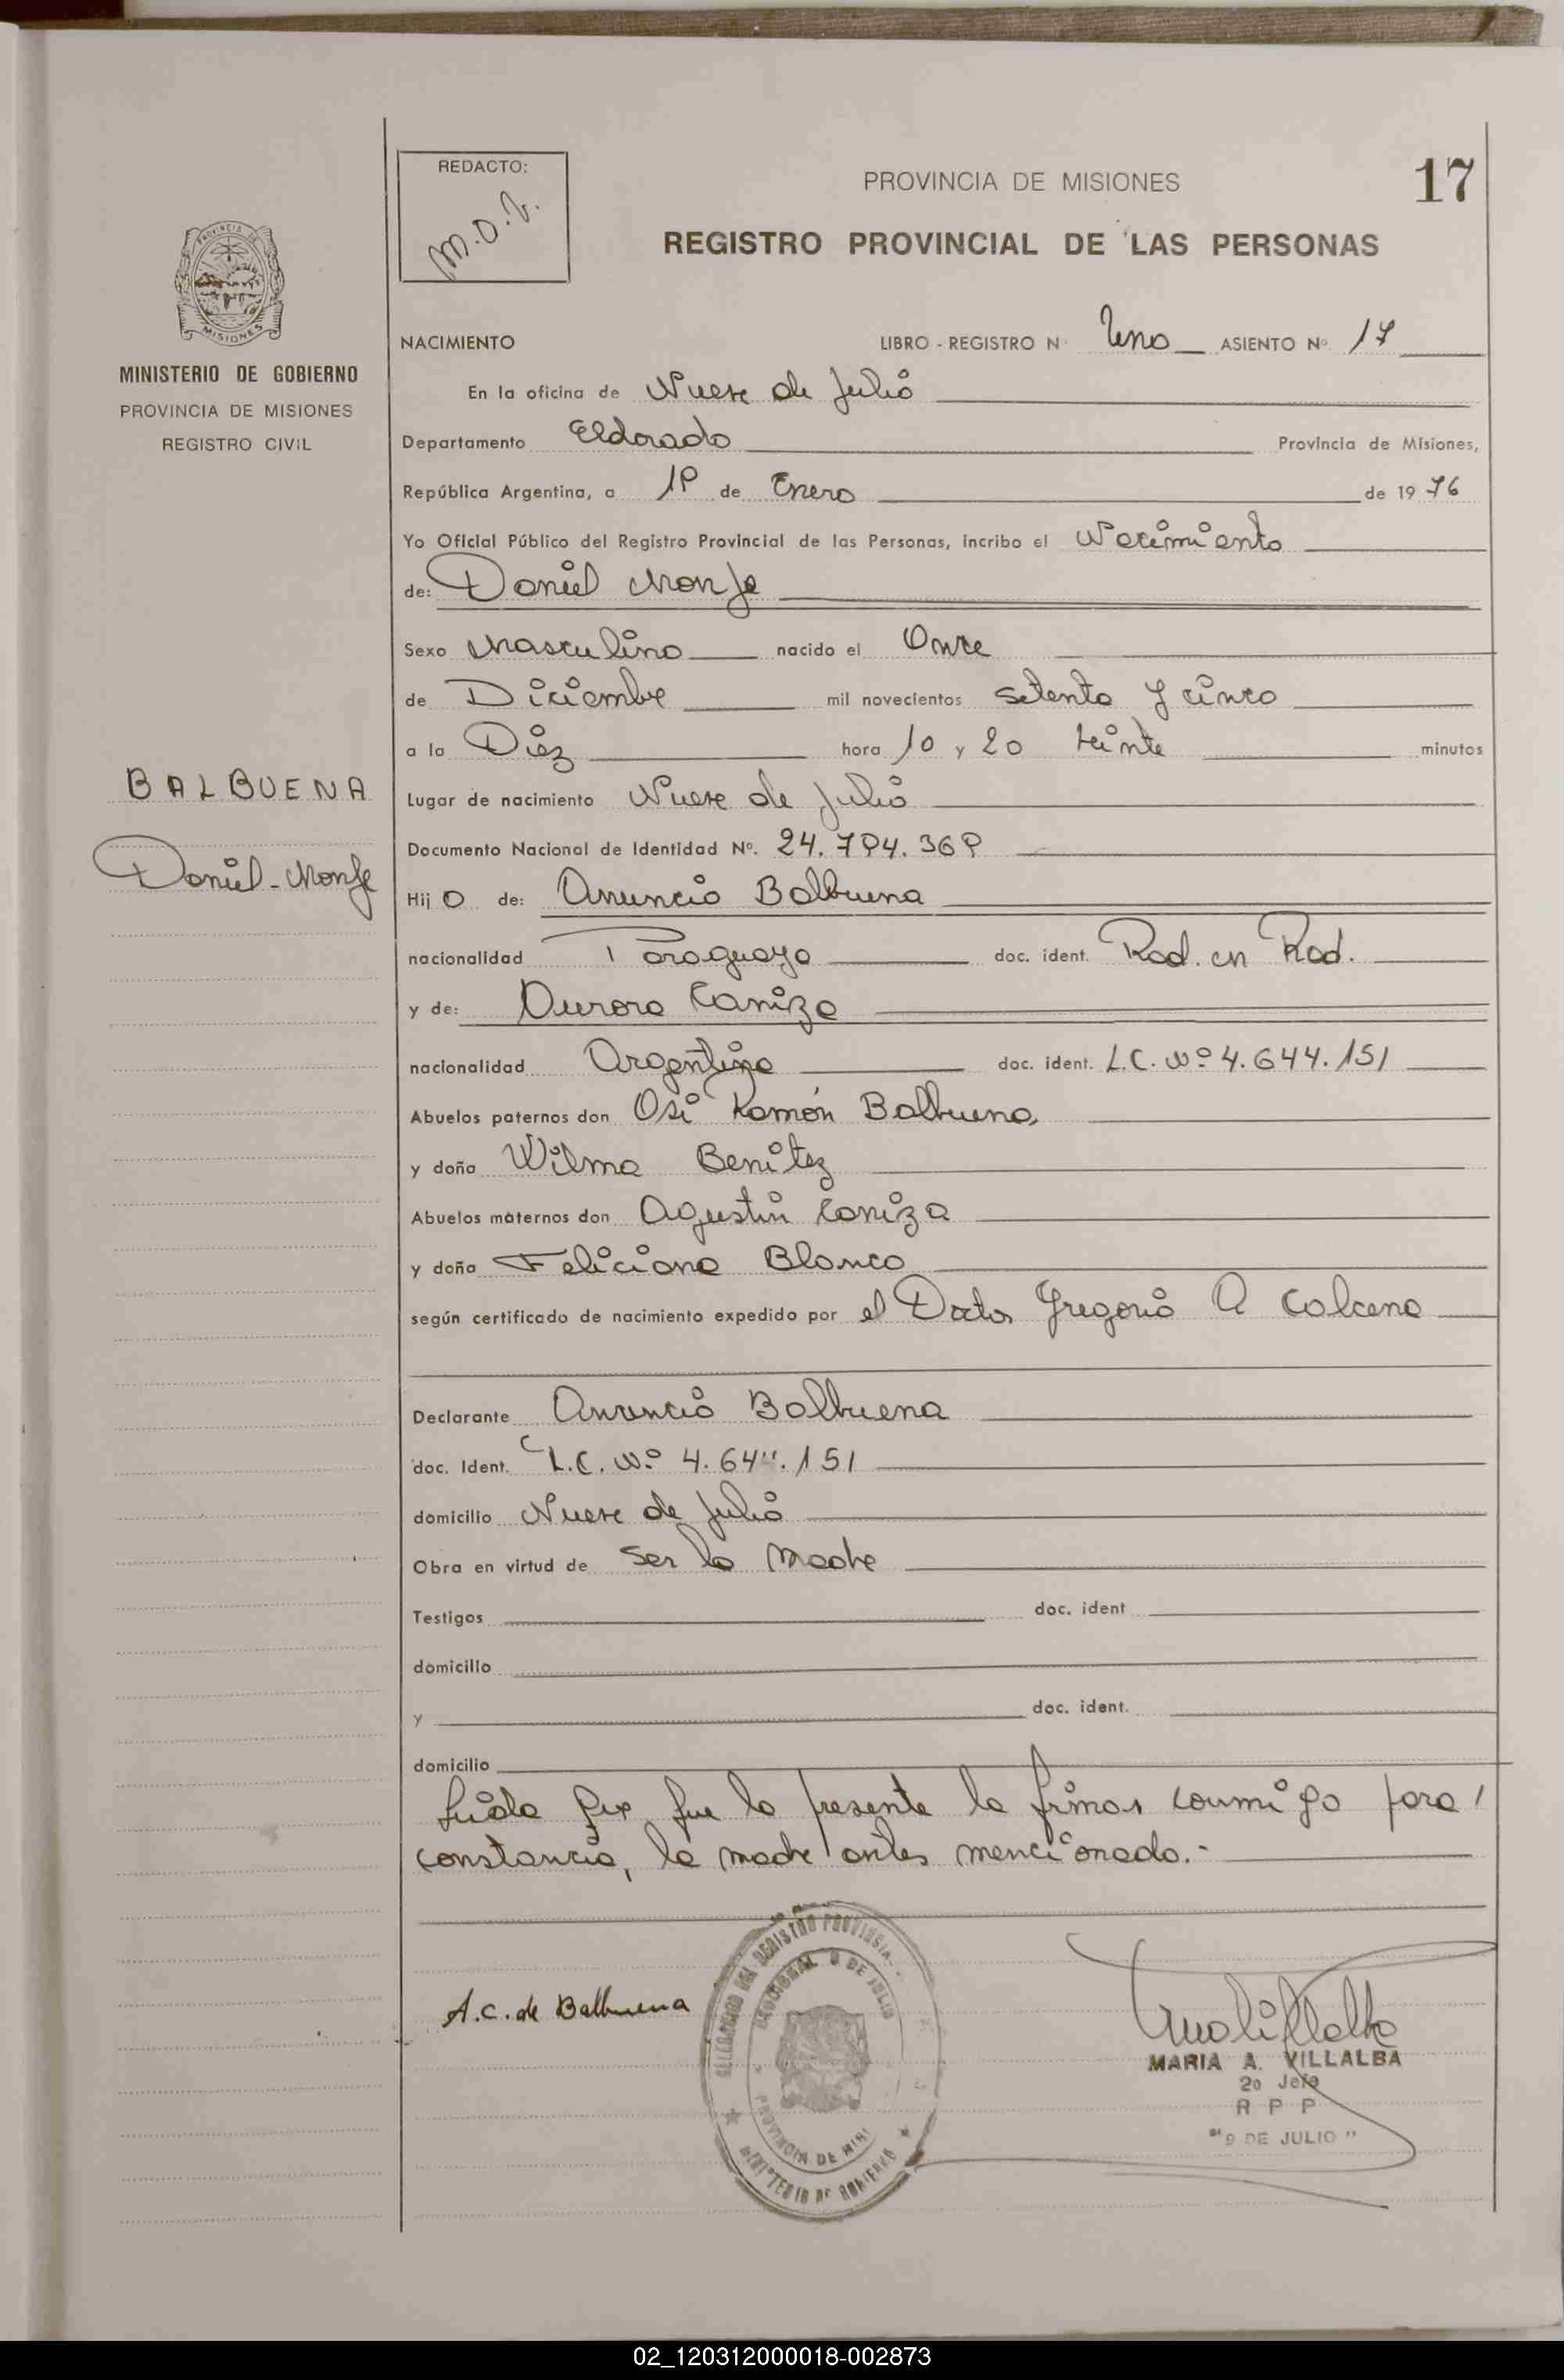 REDACTO:
PROVINCIA DE MISIONES
17
REGISTRO PROVINCIAL DE LAS PERSONAS
PROVINCIA DE
MISIONES
MINISTERIO DE GOBIERNO
PROVINCIA DE MISIONES
REGISTRO CIVIL
BALBUENA
Daniel-Monje
NACIMIENTO LIBRO - REGISTRO N· Uno ASIENTO Nº 17
En la oficina de Nueve de Julio
Departamento Eldorado Provincia de Misiones,
República Argentina, a 19 de Enero de 1976
Yo Oficial Público del Registro Provincial de las Personas, incribo el Nacimiento
de: Daniel Monje
Sexo Masculino nacido el Once
de Diciembre mil novecientos setenta y cinco
a la Diez hora 10 y 20 veinte minutos
Lugar de nacimiento Nueve de Julio
Documento Nacional de Identidad Nº. 24.794.369
Hij o de: Anuncio Balbuena
nacionalidad Paraguaya doc. ident. Rad. en Rad.
y de: Aurora Caniza
nacionalidad Argentina doc. ident. L.C. Nº 4.644.151
Abuelos paternos don Ramón Balbuena
y doña Wilma Benitez
Abuelos maternos don Agustin Caniza
y doña Feliciana Blanco
según certificado de nacimiento expedido por el Doctor Gregorio A Calcena
Declarante Anuncio Balbuena
doc. Ident. L.C. Nº 4.644.151
domicilio Nueve de Julio
Obra en virtud de ser la madre
Testigos doc. ident
domicilio
y doc. ident.
domicilio
leida que fue la presente la firman conmigo para
constancia, la madre antes mencionada.-
A.C. de Balbuena
DEL REGISTRO PROVINCIAL
SECCIONAL 9 DE JULIO
PROVINCIA DE
MINISTERIO DE GOBIERNO
MARIA A. VILLALBA
2o Jefe
R P P
"9 DE JULIO"
02_120312000018-002873